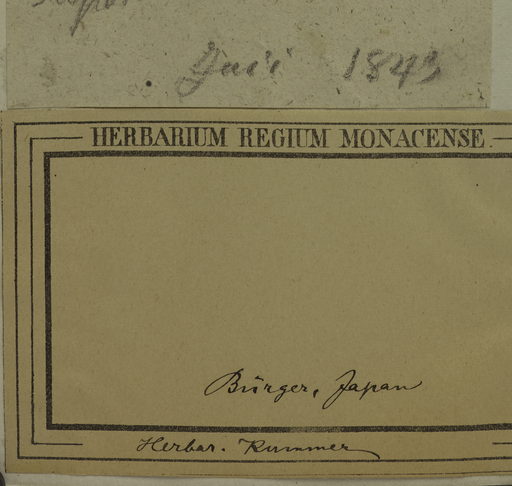 Juli 1843
HERBARIUM REGIUM MONACENSE.
Bürger, Japan
Herbar. Kummer